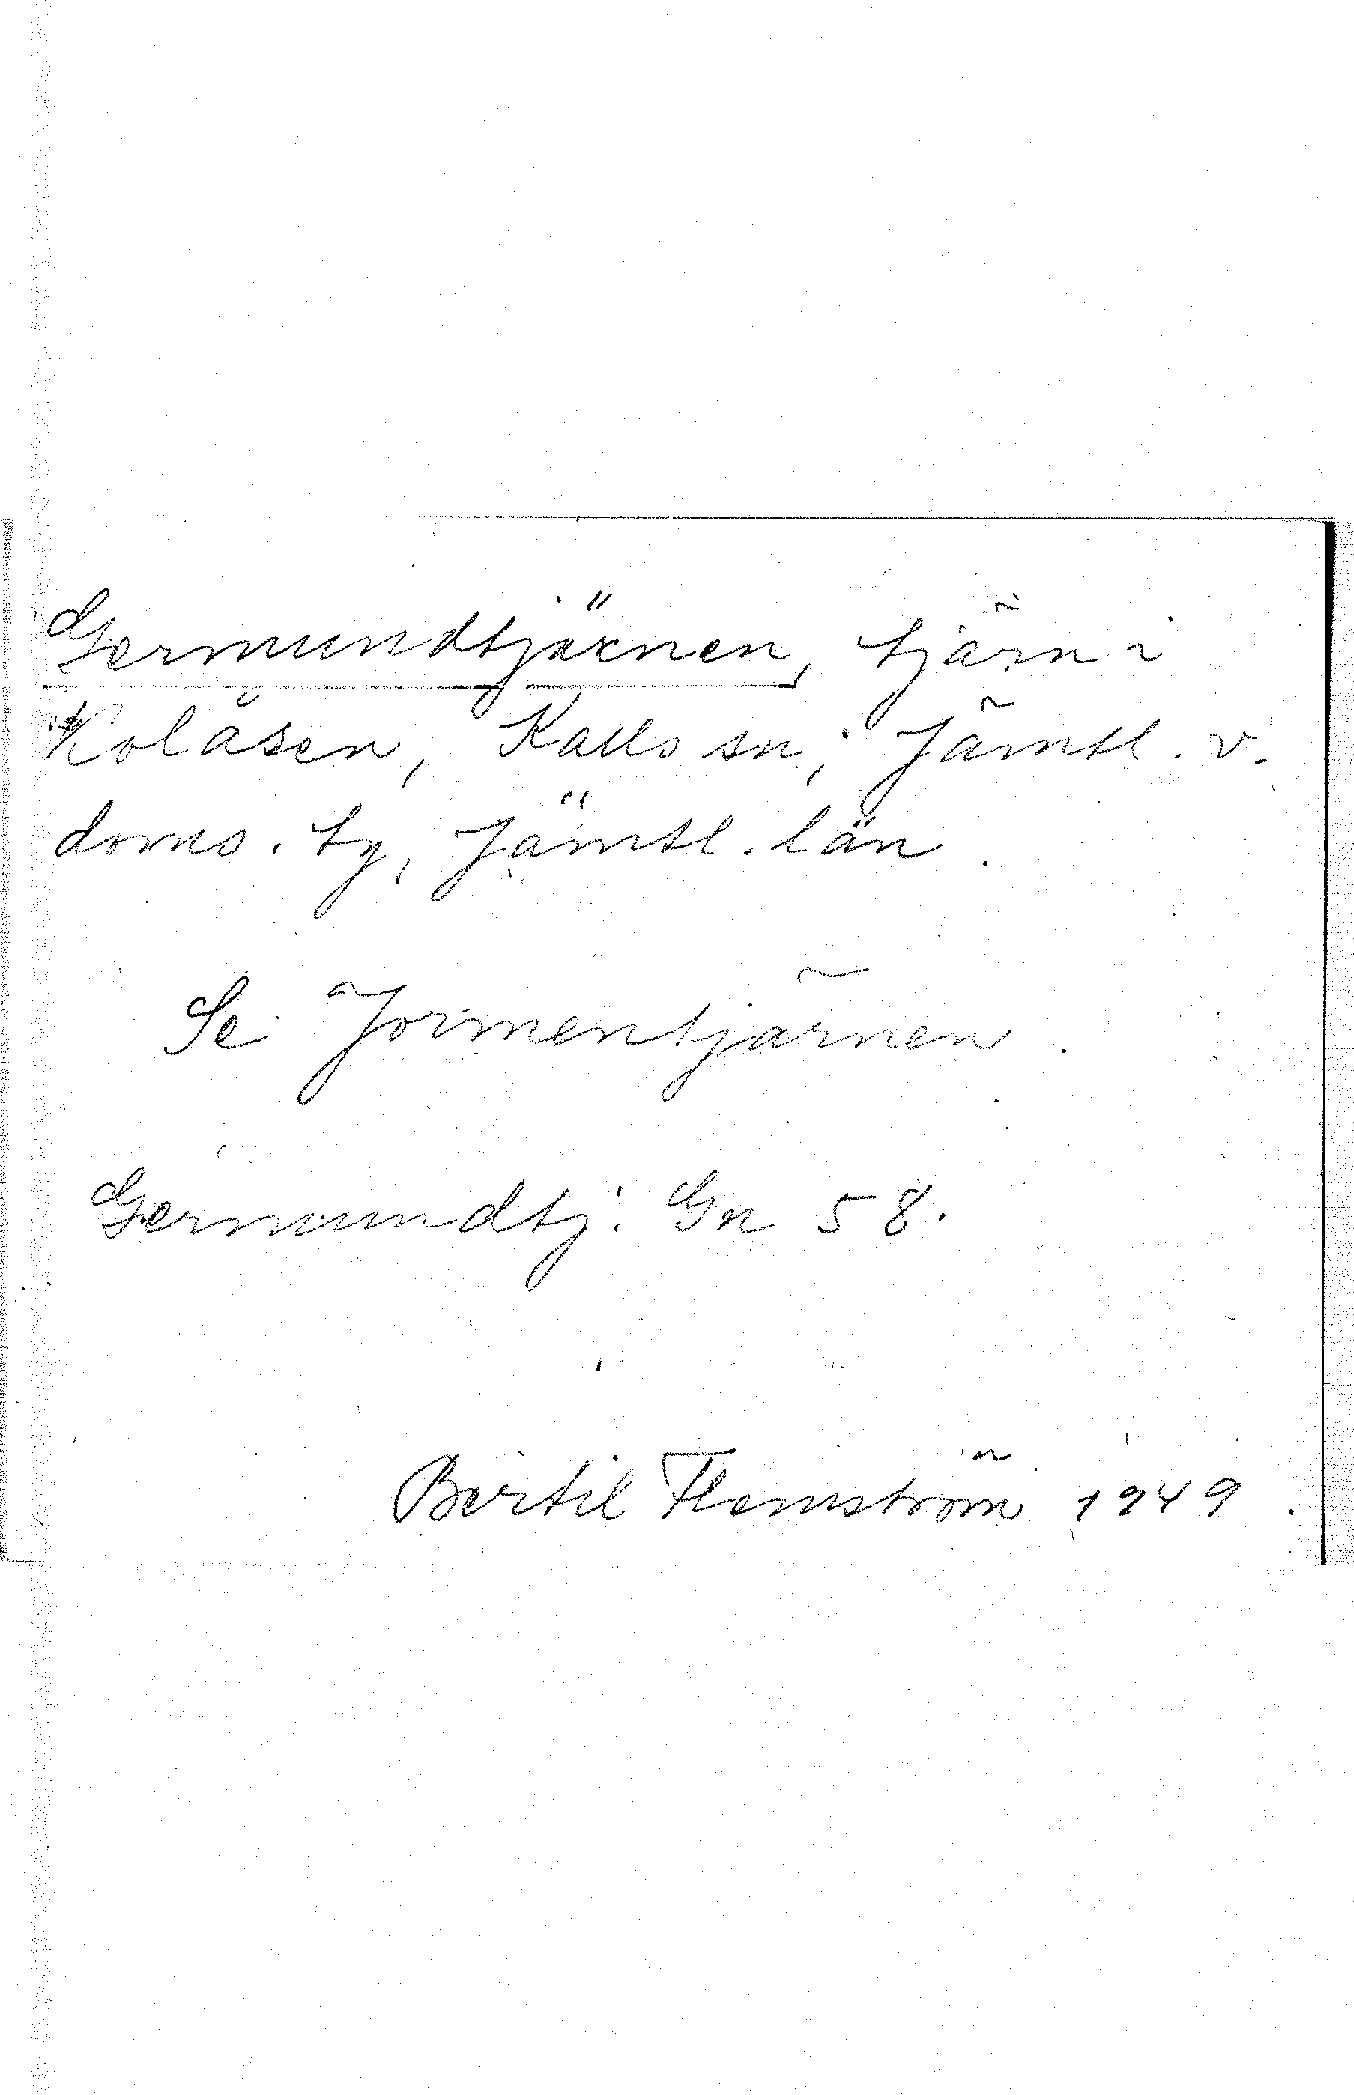 Germundtjärnen, tjärn i
Kolåsen, Kalls sn, Jämtl. v.
doms. tg, Jämtl. län.
Se Jormentjärnen.
Germundtj. Gn 58.
Bertil Flemström 1949.